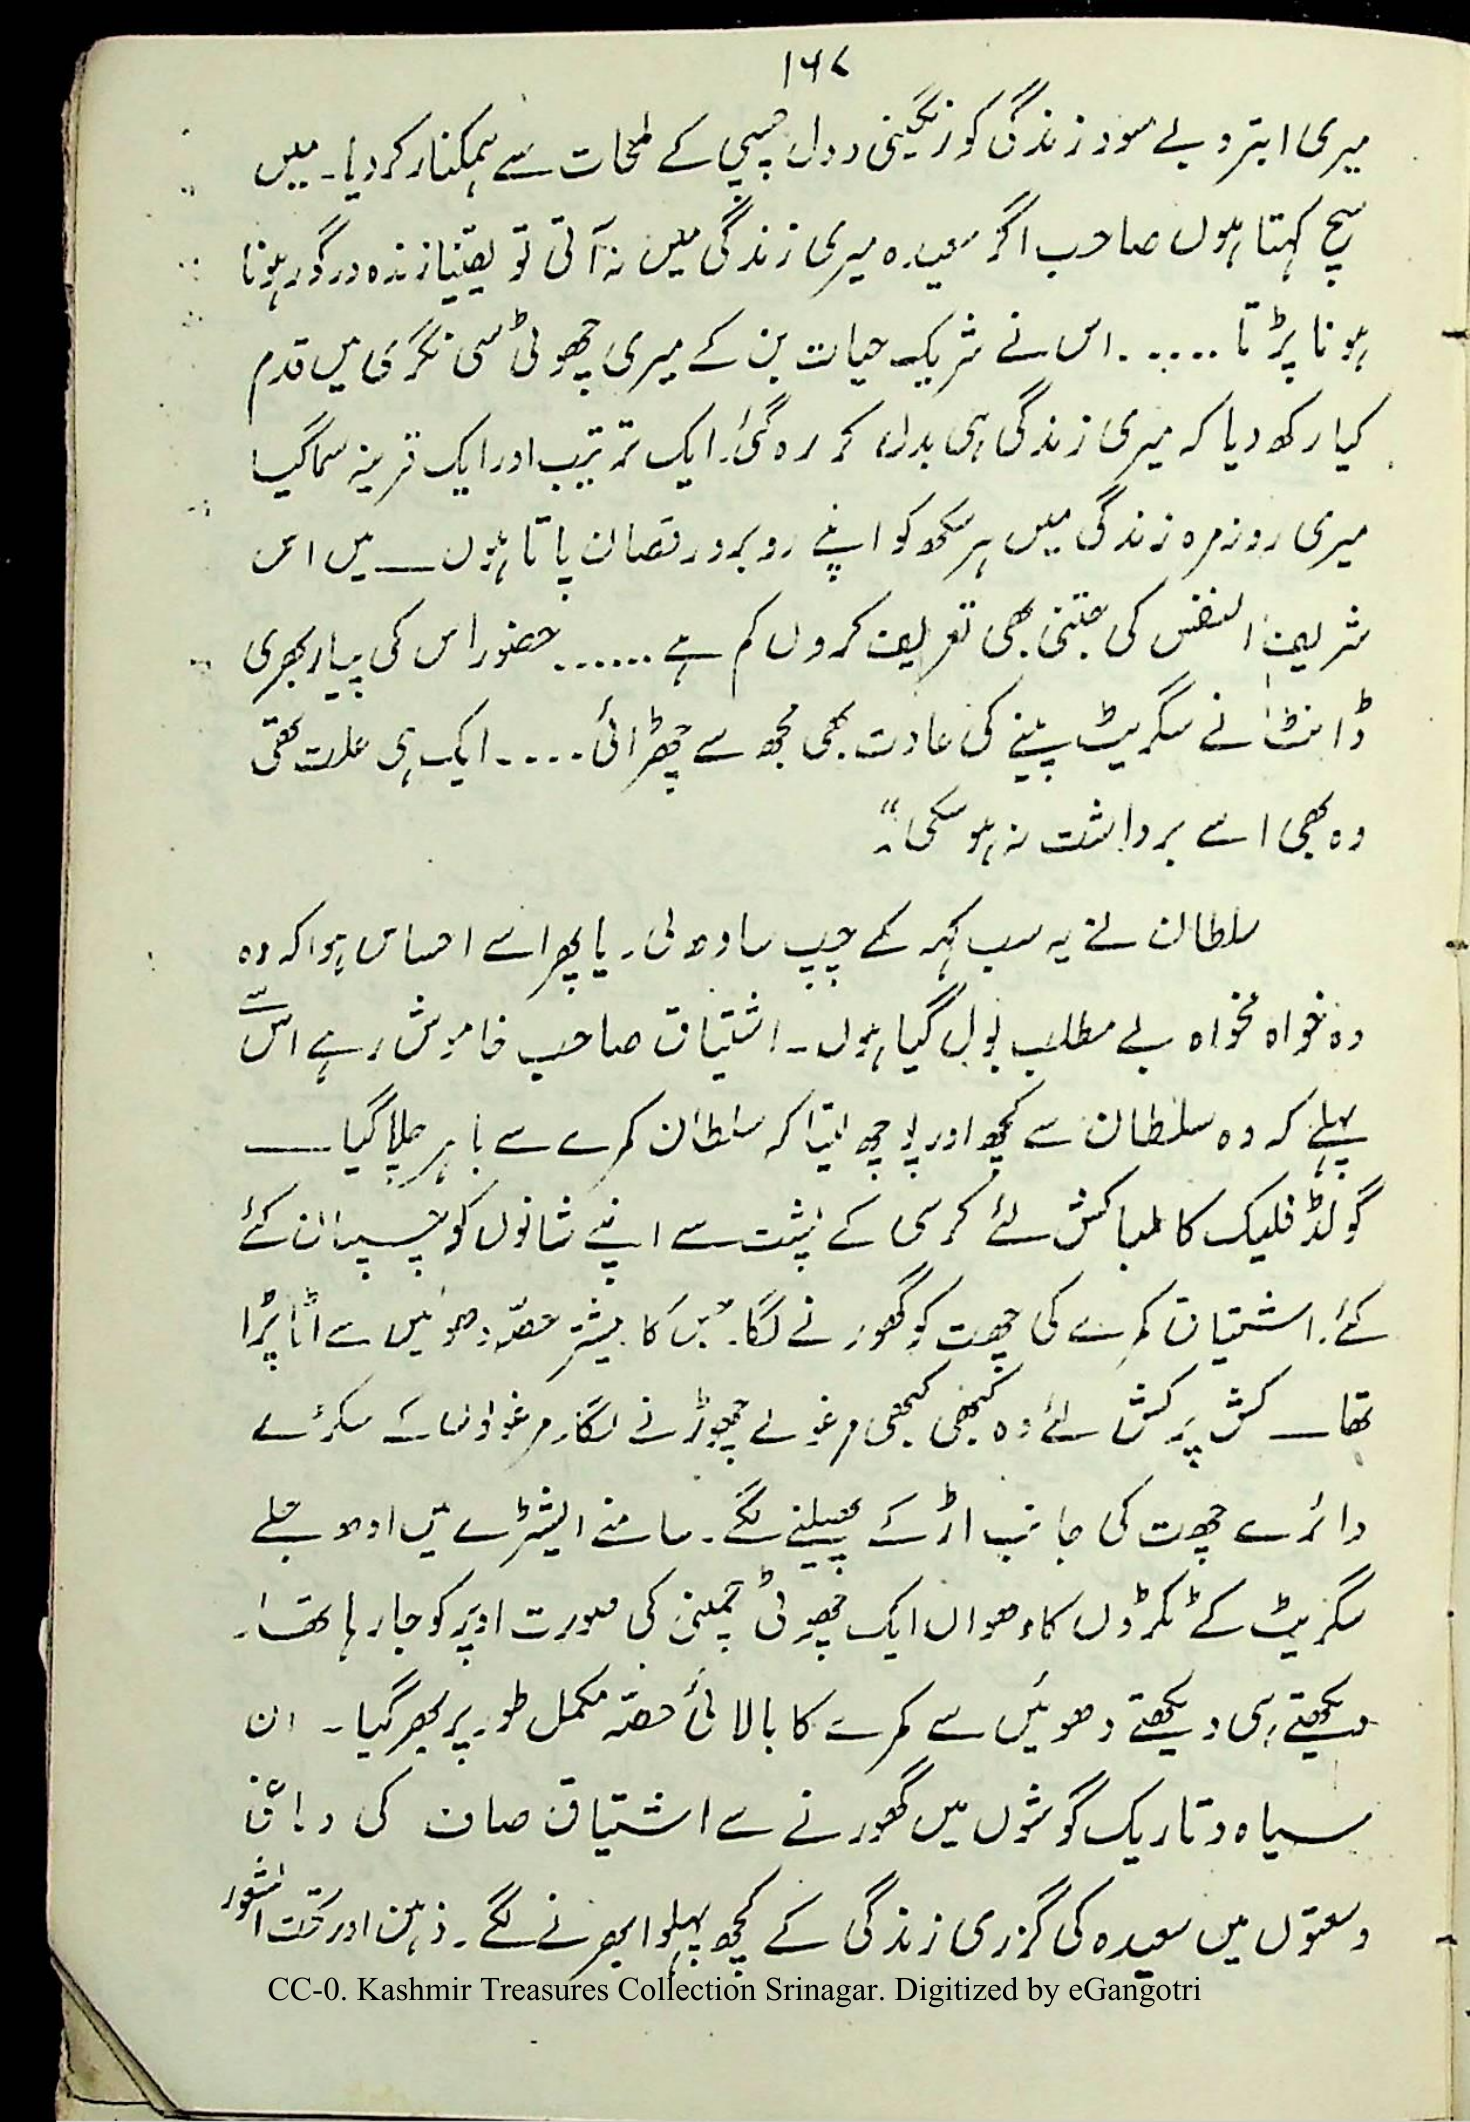 ۱۶۷
میری ابتر و بے سود زندگی کو رنگینی و دل چسپی کے لمحات سے ہمکنار کر دیا۔ میں
سچ کہتا ہوں صاحب اگر سعیدہ میری زندگی میں نہ آتی تو یقیناً زندہ درگور ہونا
ہونا پڑتا ..... اس نے شریک حیات بن کے میری چھوٹی سی نگری میں قدم
کیا رکھ دیا کہ میری زندگی ہی بدل کر رہ گئی۔ ایک ترتیب اور ایک قرینہ سما گیا
میری روزمرہ زندگی میں ہر سکھ کو اپنے روبرو رقصاں پاتا ہوں ـــ میں اس
شریف النفس کی جتنی بھی تعریف کروں کم ہے ...... حضور اس کی پیار بھری
ڈانٹ نے سگریٹ پینے کی عادت بھی مجھ سے چھڑائی .... ایک ہی علت تھی
وہ بھی اسے برداشت نہ ہو سکی"۔
سلطان نے یہ سب کہہ کے چپ سادھ لی۔ یا پھر اسے احساس ہوا کہ وہ
وہ خواہ مخواہ بے مطلب بول گیا ہوں۔ اشتیاق صاحب خاموش رہے اس سے
پہلے کہ وہ سلطان سے کچھ اور پوچھ لیتا کہ سلطان کمرے سے باہر چلا گیا ـــ
گولڈ فلیک کا لمبا کش لئے کرسی کے پشت سے اپنے شانوں کو چسپاں کئے
کئے۔ اشتیاق کمرے کی چھت کو گھورنے لگا۔ جس کا بیشتر حصّہ دھوئیں سے اٹا پڑا
تھا ـــ کش پر کش لئے وہ کبھی کبھی مرغولے چھوڑنے لگا۔ مرغولوں کے سکڑے
دائرے چھت کی جانب اڑ کے پھیلنے لگے۔ سامنے ایشٹرے میں ادھ جلے
سگریٹ کے ٹکڑوں کا دھواں ایک چھوٹی چمنی کی صورت اوپر کو جا رہا تھا۔
دیکھتے ہی دیکھتے دھوئیں سے کمرے کا بالائی حصّہ مکمل طور پر بھر گیا۔ ان
سیاہ و تاریک گوشوں میں گھورنے سے اشتیاق صاف کی
وسعتوں میں سعیدہ کی گزری زندگی کے کچھ پہلو ابھرنے لگے۔ ذہن اور تحت الشعور
CC-0. Kashmir Treasures Collection Srinagar. Digitized by eGangotri